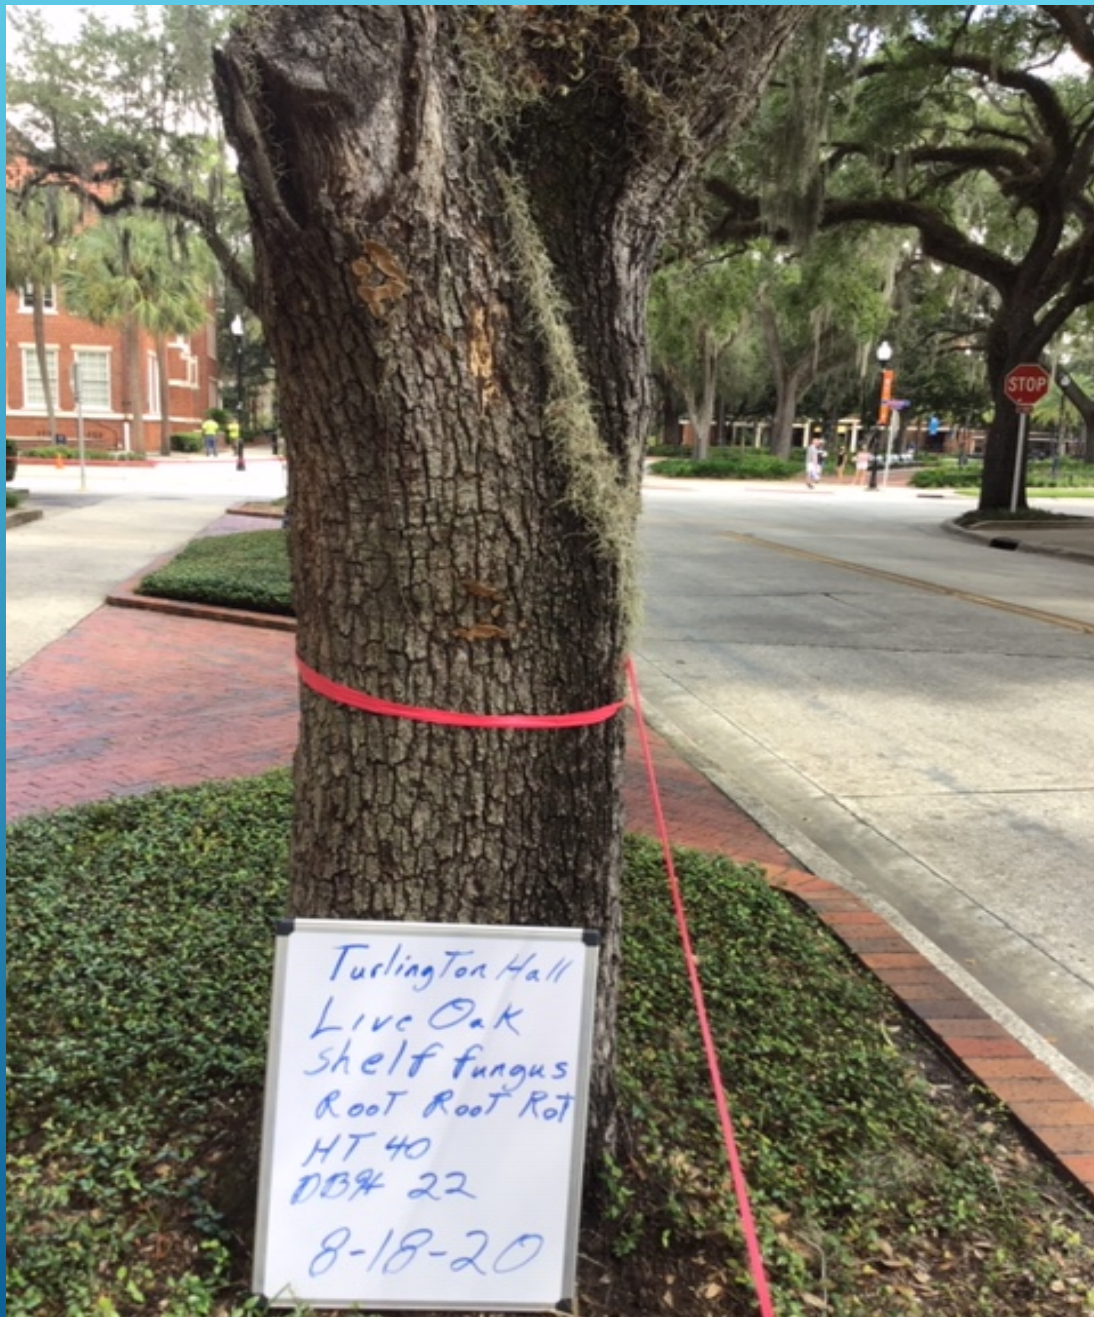 STOP
Turlington Hall
Live Oak
Shelf fungus
Root Root Rot
HT 40
DBH 22
8-18-20